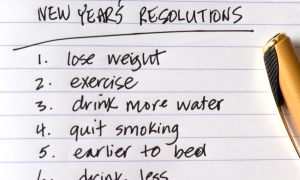 NEW YEAR'S RESOLUTIONS
1. lose weight
2. exercise
3. drink more water
4. quit smoking
5. earlier to bed
6. drink less